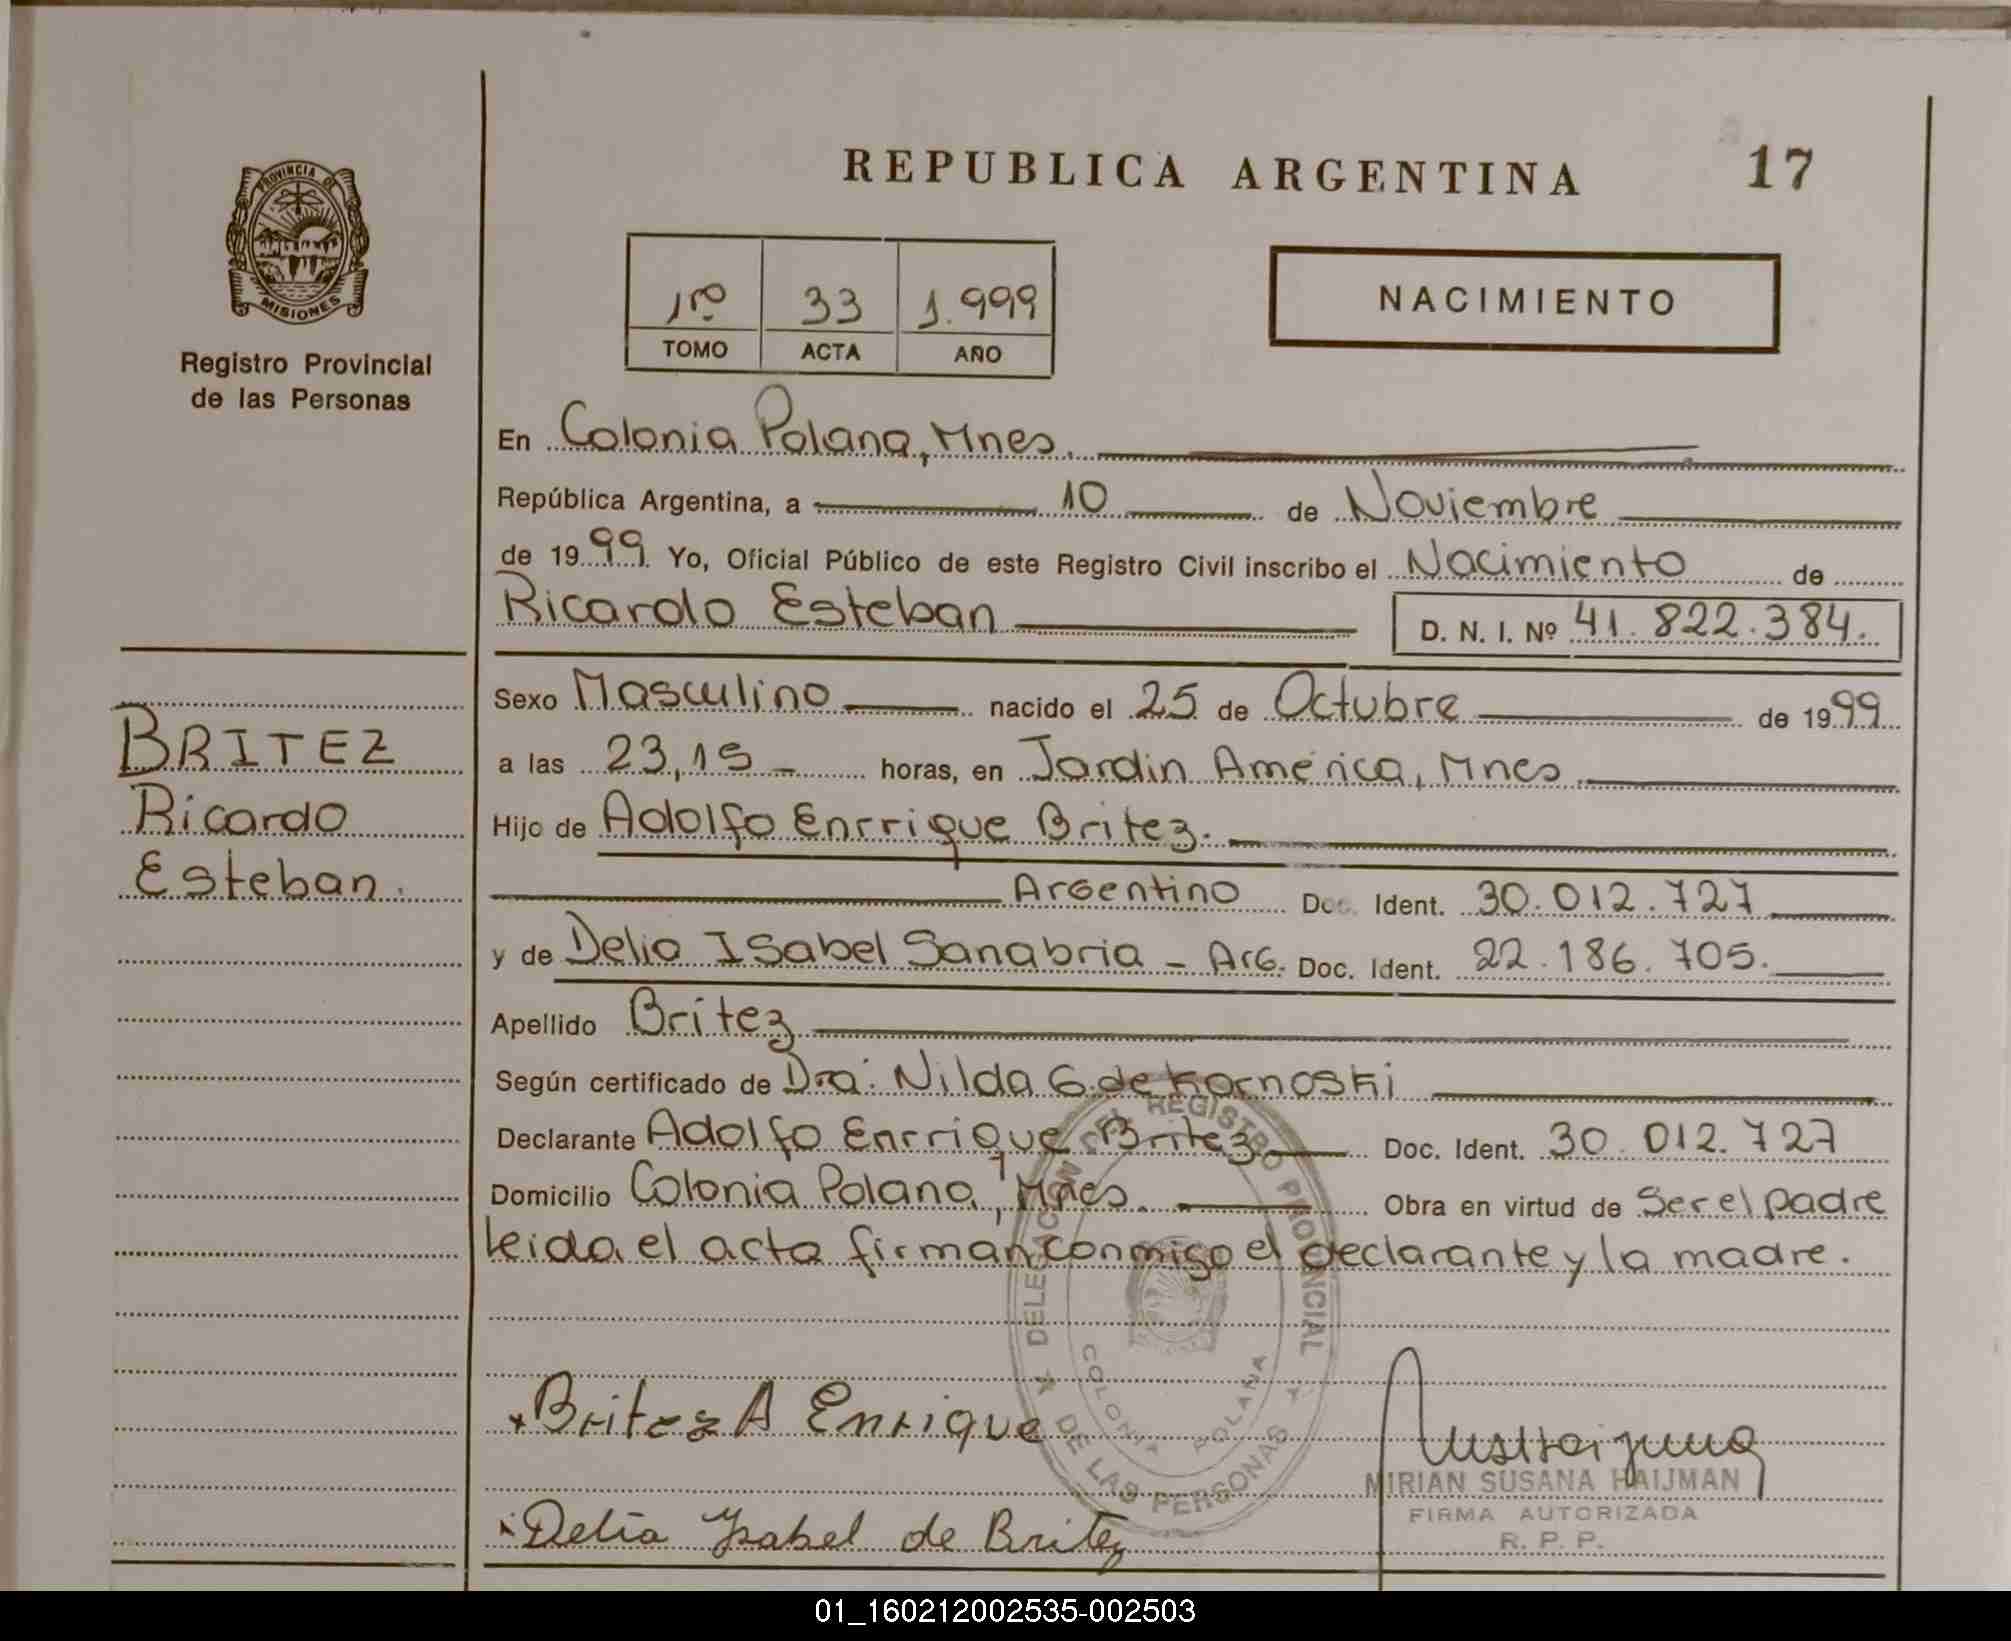 REPUBLICA ARGENTINA 17
PROVINCIA DE
MISIONES
Registro Provincial
de las Personas
1ro 33 1.999
TOMO ACTA AÑO
NACIMIENTO
En Colonia Polana, Mnes.
República Argentina, a 10 de Noviembre
de 1999. Yo, Oficial Público de este Registro Civil inscribo el Nacimiento de
Ricardo Esteban D. N. I. Nº 41.822.384.
BRITEZ
Ricardo
Esteban.
Sexo Masculino nacido el 25 de Octubre de 1999
a las 23,15 horas, en Jardin América, Mnes
Hijo de Adolfo Enrrique Britez.
Argentino Doc. Ident. 30.012.727
y de Delia Isabel Sanabria - Arg. Doc. Ident. 22.186.705.
Apellido Britez
Según certificado de Dra. Nilda G. de Kornoski
Declarante Adolfo Enrrique Britez Doc. Ident. 30.012.727
Domicilio Colonia Polana, Mnes. Obra en virtud de Ser el padre
leida el acta firman conmigo el declarante y la madre.
DELEGACION DEL REGISTRO PROVINCIAL
DE LAS PERSONAS
COLONIA POLANA
Britez A Enrique
MIRIAN SUSANA HAIJMAN
FIRMA AUTORIZADA
R. P. P.
Delia Isabel de Britez
01_160212002535-002503